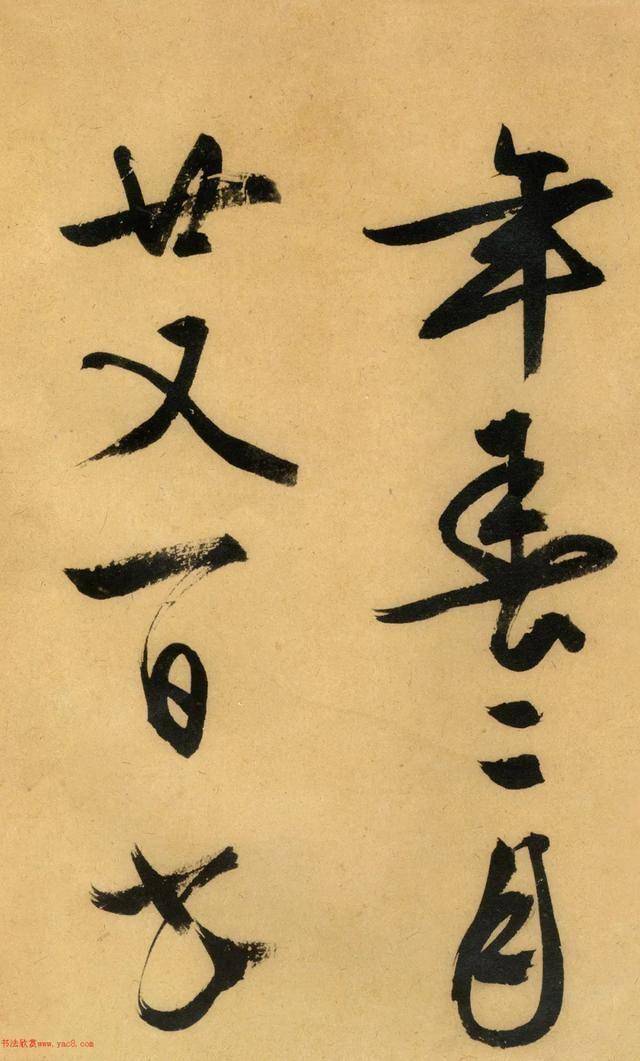 年春二月
廿又一日
书法欣赏www.yac8.com